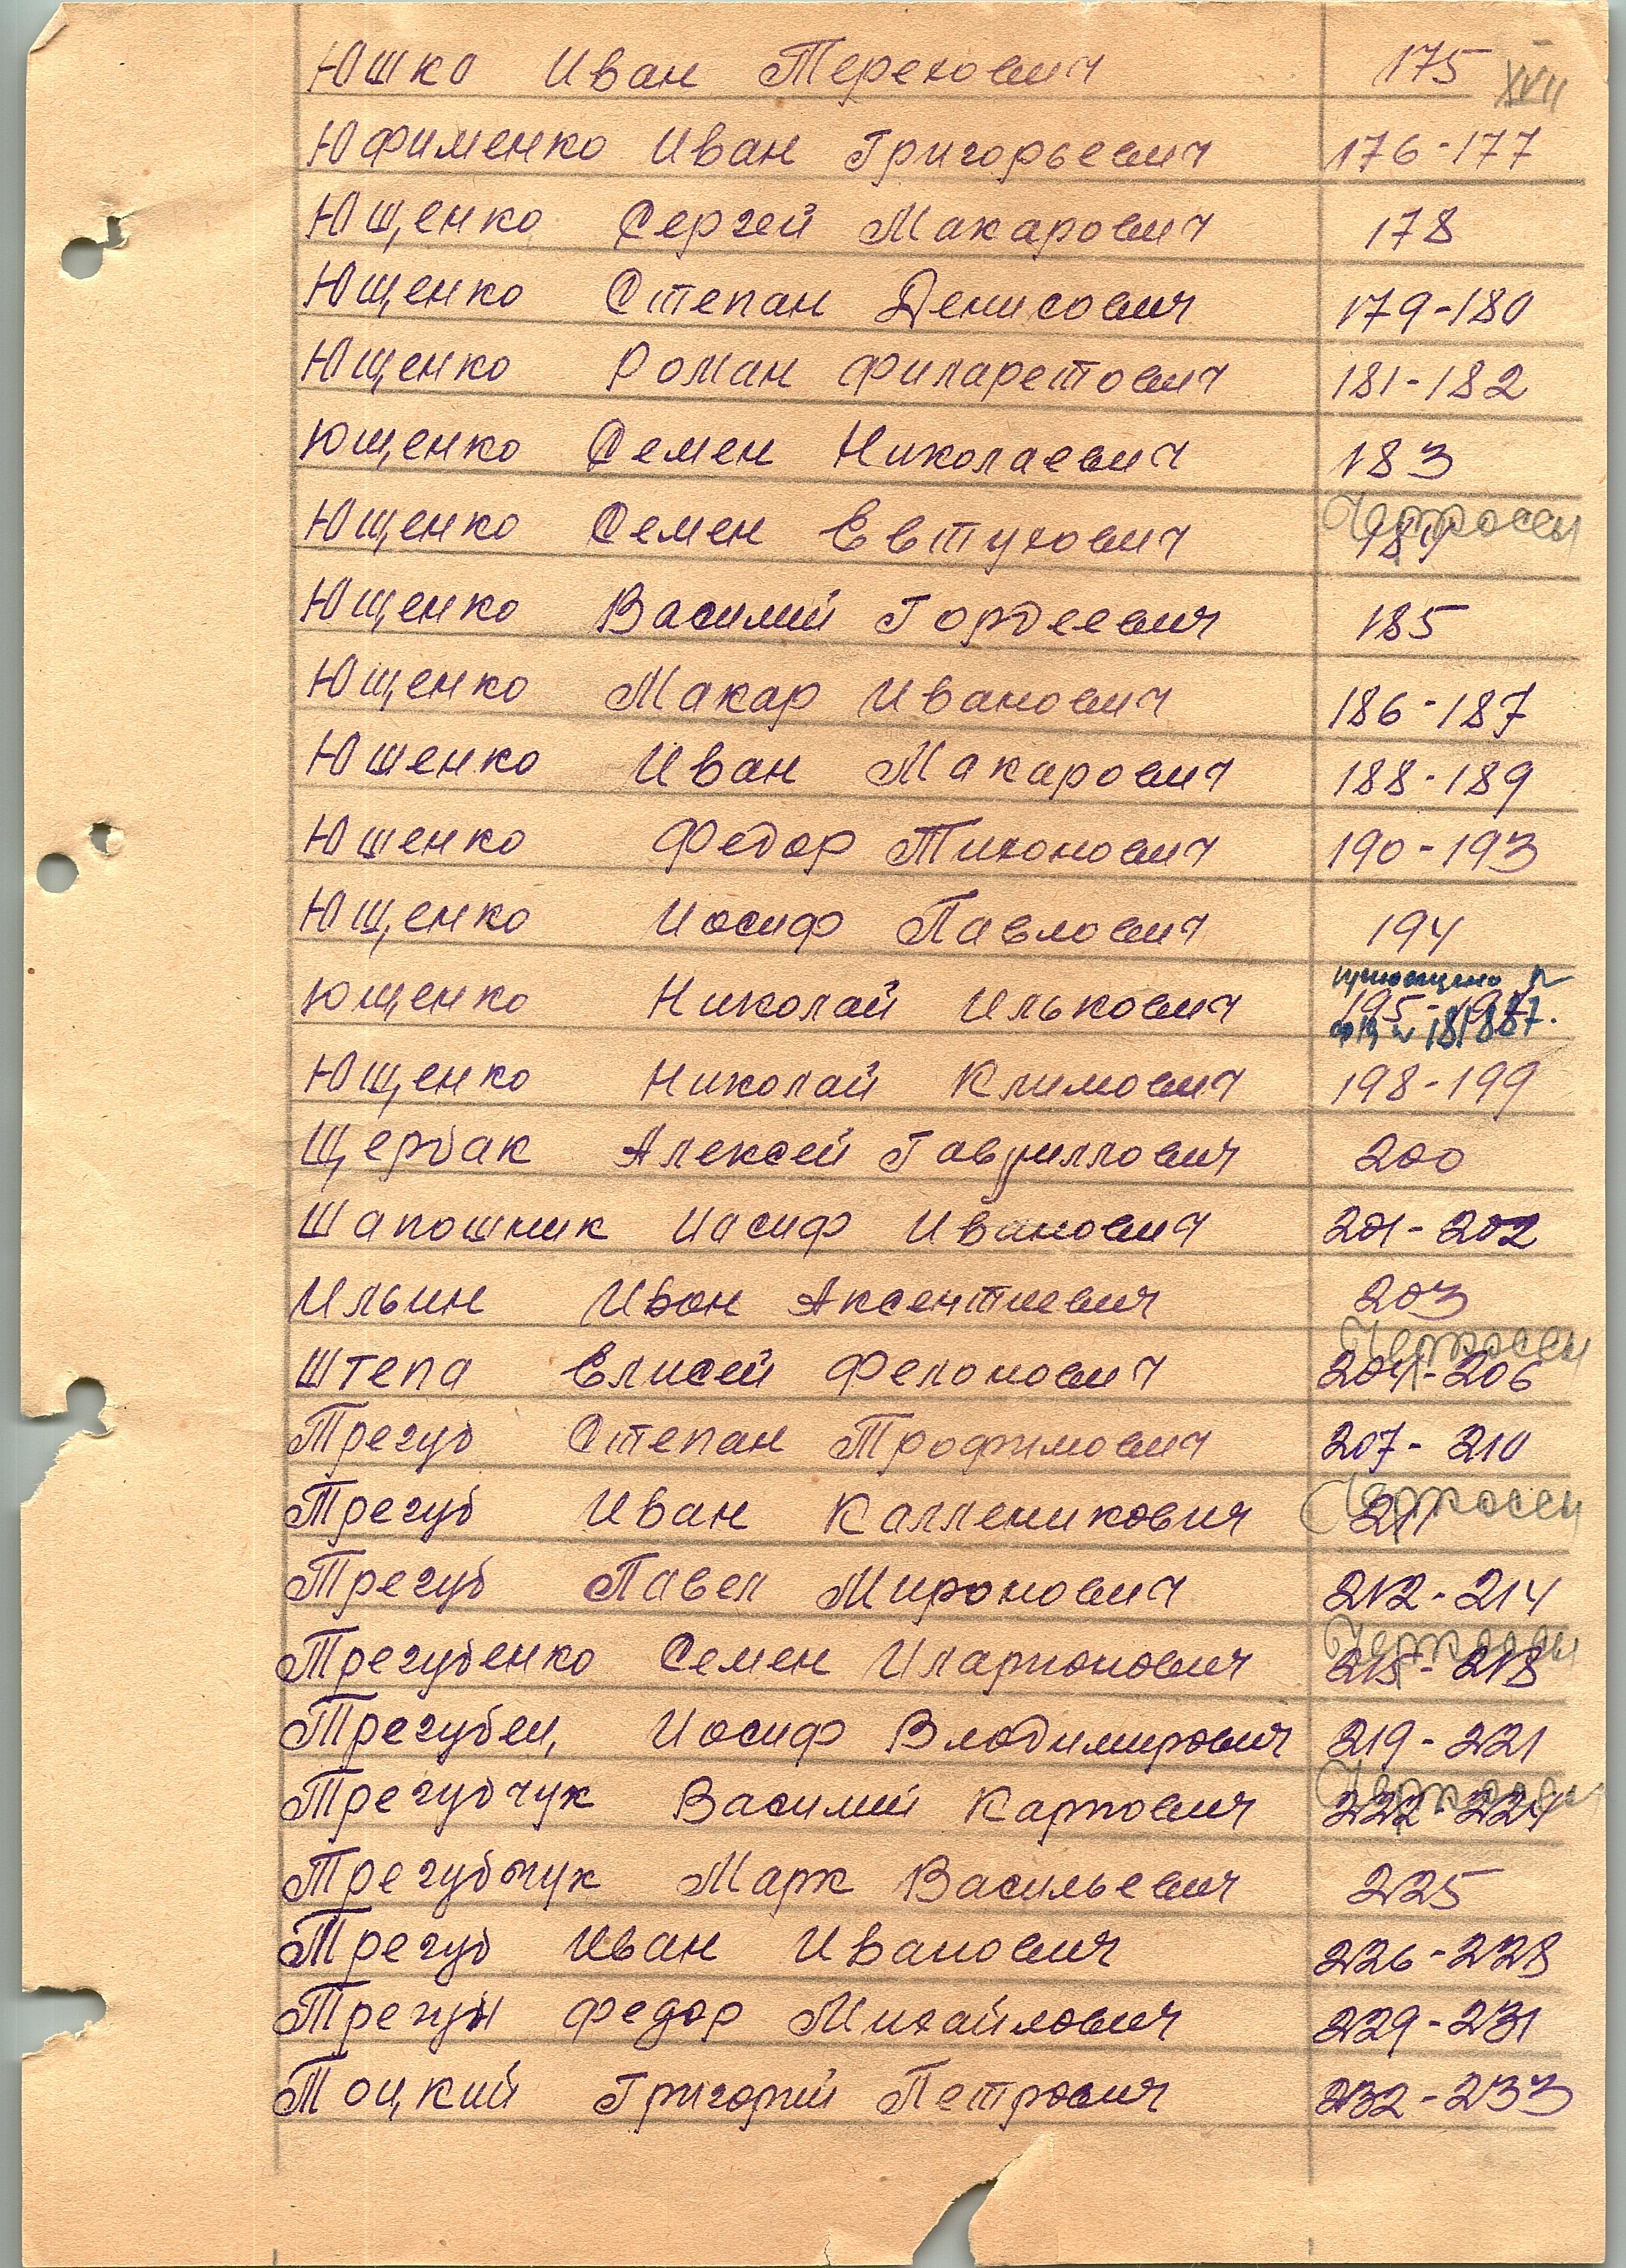 Юшко Иван Терехович 175
XVII
Юфименко Иван Григорьевич 176-177
Ющенко Сергей Макарович 178
Ющенко Степан Денисович 179-180
Ющенко Роман Филаретович 181-182
Ющенко Семен Николаевич 183
Черкассы
Ющенко Семен Евтухович 184
Ющенко Василий Гордеевич 185
Ющенко Макар Иванович 186-187
Юшенко Иван Макарович 188-189
Юшенко Федор Тихонович 190-193
Ющенко Иосиф Павлович 194
Ющенко Николай Илькович 195-197
181887.
Ющенко Николай Климович 198-199
Щербак Алексей Гавриллович 200
Шапошник Иосиф Иванович 201-202
Ильин Иван Аксентиевич 203
Черкассы
Штепа Елисей Фелонович 204-206
Трегуб Степан Трофимович 207-210
Черкассы
Трегуб Иван Калленикович 211
Трегуб Павел Миронович 212-214
Черкассы
Трегубенко Семен Иларионович 215-218
Трегубец Иосиф Владимирович 219-221
Черкассы
Трегубчук Василий Карпович 222-224
Трегубчук Марк Васильевич 225
Трегуб Иван Иванович 226-228
Федор Михайлович 229-231
Тоцкий Григорий Петрович 232-233